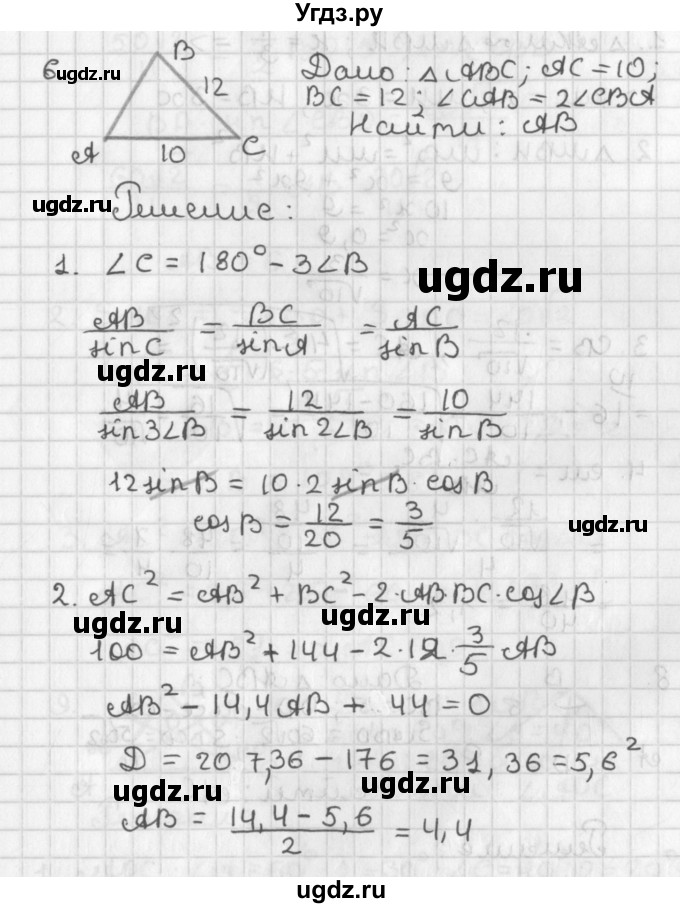 Угдз.ру
6.
B
12
A
10
C
Дано: △ABC; AC = 10;
BC = 12; ∠CAB = 2∠CBA
Найти: AB
ugdz.ru
Решение:
1. ∠C = 180° - 3∠B
ugdz.ru
AB/sin C = BC/sin A = AC/sin B
ugdz.ru
AB/sin 3∠B = 12/sin 2∠B = 10/sin B
12 sin B = 10 · 2 sin B · cos B
cos B = 12/20 = 3/5
ugdz.ru
2. AC² = AB² + BC² - 2·AB·BC·cos∠B
ugdz.ru
100 = AB² + 144 - 2·12·3/5 AB
AB² - 14,4AB + 44 = 0
D = 207,36 - 176 = 31,36 = 5,6²
ugdz.ru ugdz.ru
AB = (14,4 - 5,6)/2 = 4,4
ugdz.ru